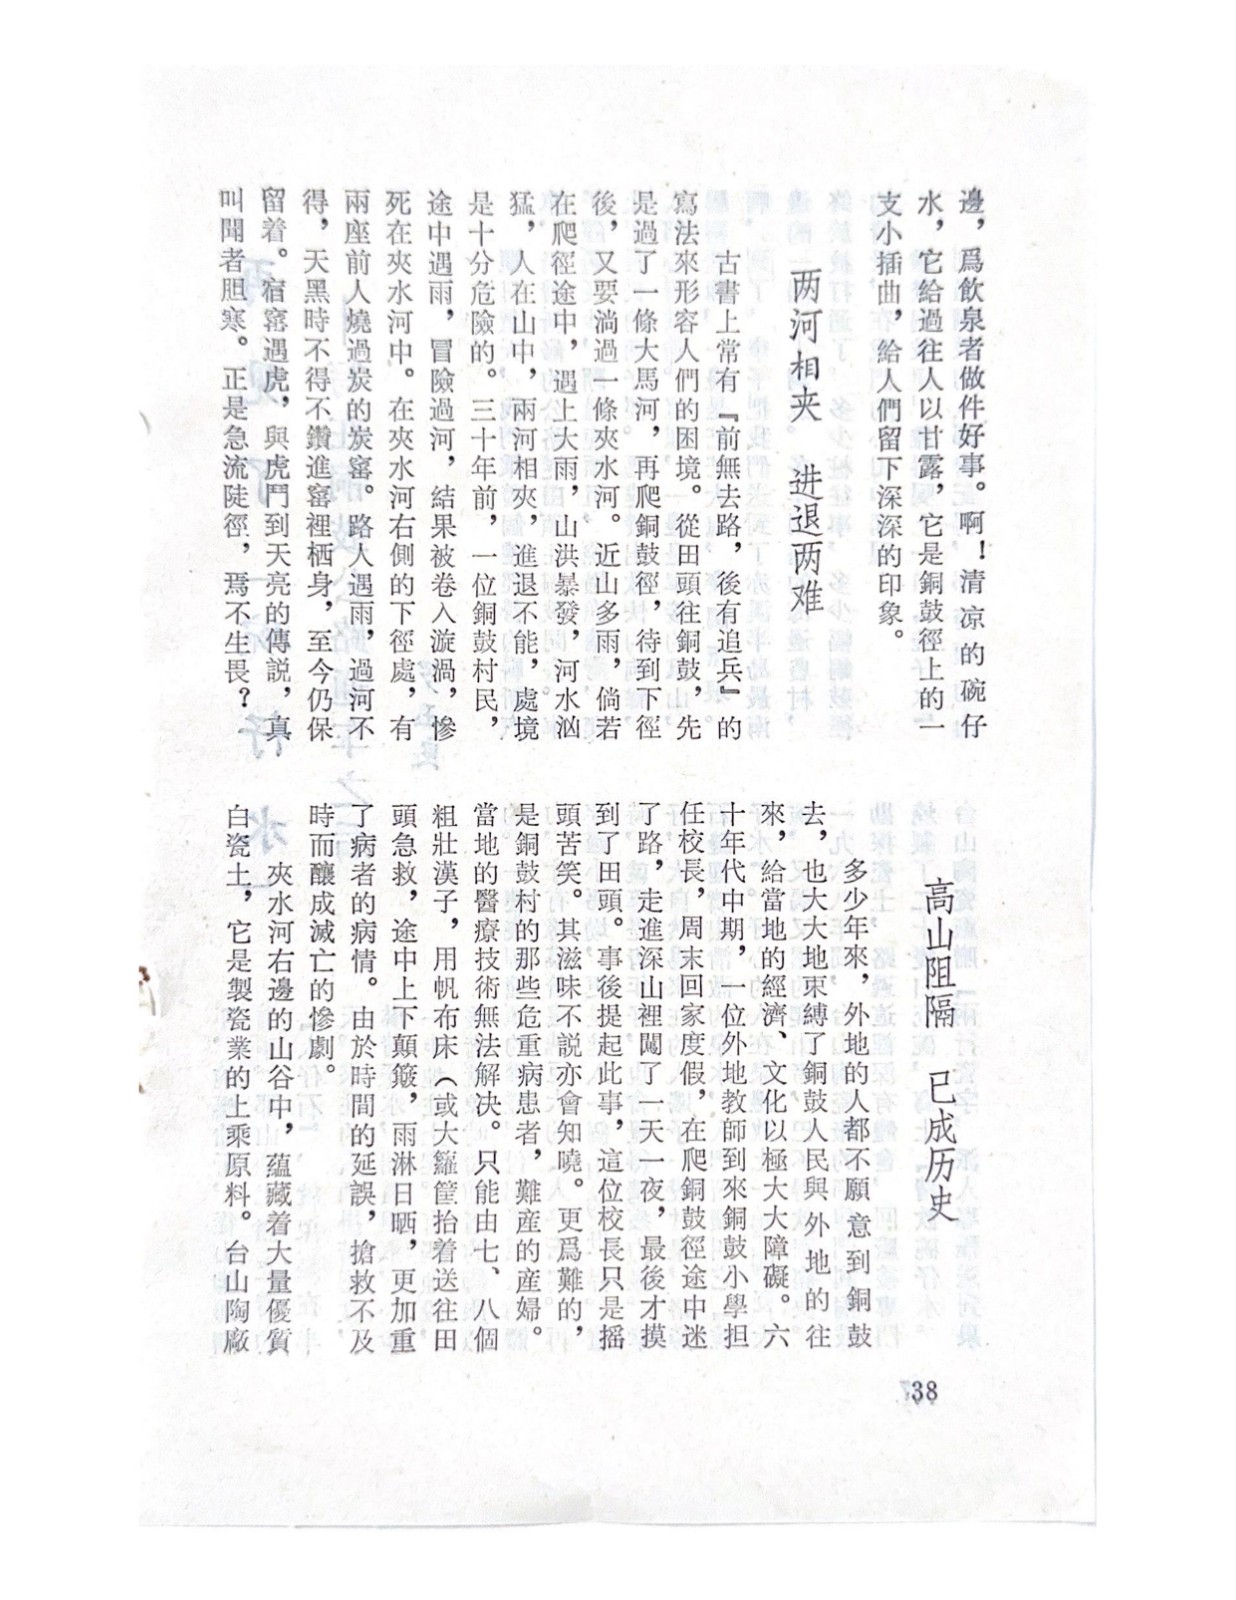 邊，爲飲泉者做件好事。啊！清凉的碗仔
水，它給過往人以甘露，它是銅鼓徑上的一
支小插曲，給人們留下深深的印象。
两河相夹　进退两难
古書上常有『前無去路，後有追兵』的
寫法來形容人們的困境。從田頭往銅鼓，先
是過了一條大馬河，再爬銅鼓徑，待到下徑
後，又要淌過一條夾水河。近山多雨，倘若
在爬徑途中，遇上大雨，山洪暴發，河水汹
猛，人在山中，兩河相夾，進退不能，處境
是十分危險的。三十年前，一位銅鼓村民，
途中遇雨，冒險過河，結果被卷入漩渦，慘
死在夾水河中。在夾水河右側的下徑處，有
兩座前人燒過炭的炭窰。路人遇雨，過河不
得，天黑時不得不鑽進窰裡栖身，至今仍保
留着。宿窰遇虎，與虎鬥到天亮的傳説，真
叫聞者胆寒。正是急流陡徑，焉不生畏？
高山阻隔　已成历史
多少年來，外地的人都不願意到銅鼓
去，也大大地束縛了銅鼓人民與外地的往
來，給當地的經濟、文化以極大大障礙。六
十年代中期，一位外地教師到來銅鼓小學担
任校長，周末回家度假，在爬銅鼓徑途中迷
了路，走進深山裡闖了一天一夜，最後才摸
到了田頭。事後提起此事，這位校長只是摇
頭苦笑。其滋味不說亦會知曉。更爲難的，
是銅鼓村的那些危重病患者，難産的産婦。
當地的醫療技術無法解决。只能由七、八個
粗壯漢子，用帆布床（或大籮筐抬着送往田
頭急救，途中上下顛簸，雨淋日晒，更加重
了病者的病情。由於時間的延誤，搶救不及
時而釀成滅亡的慘劇。
夾水河右邊的山谷中，蘊藏着大量優質
白瓷土，它是製瓷業的上乘原料。台山陶廠
38